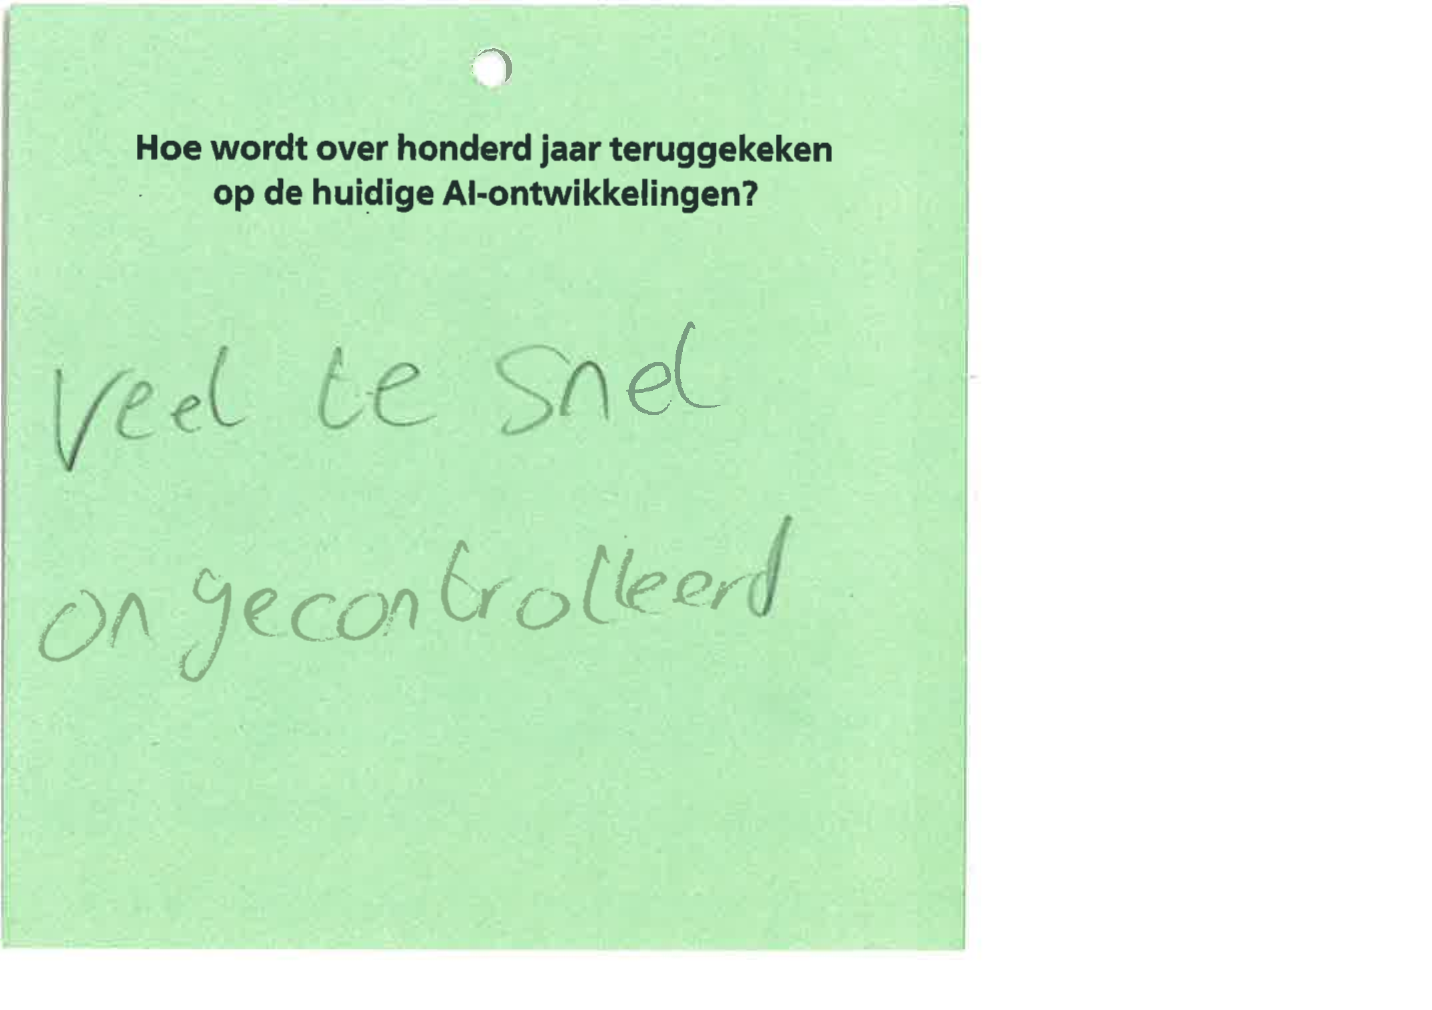 Hoe wordt over honderd jaar teruggekeken
op de huidige AI-ontwikkelingen?
veel te snel
ongecontrolleerd